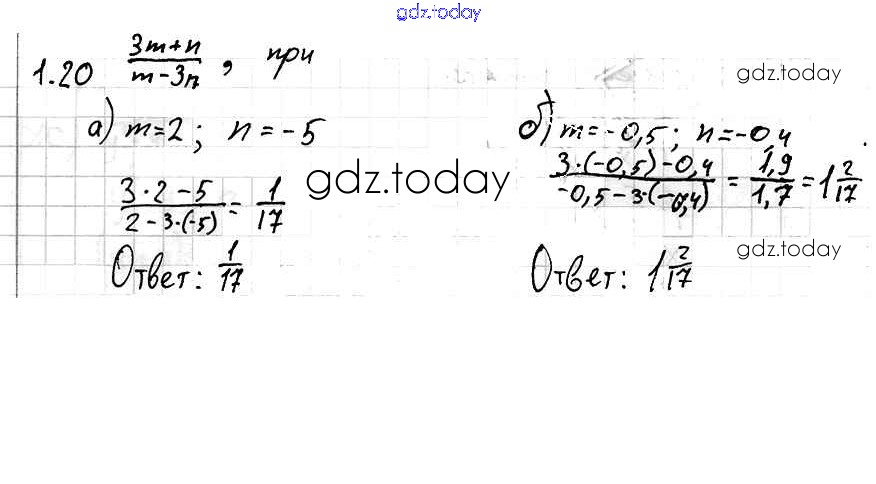 gdz.today
1.20 (3m+n)/(m-3n), при
gdz.today
а) m=2; n=-5
(3·2-5)/(2-3·(-5)) = 1/17
gdz.today
Ответ: 1/17
б) m=-0,5; n=-0,4
(3·(-0,5)-0,4)/(-0,5-3·(-0,4)) = 1,9/1,7 = 1 2/17
gdz.today
Ответ: 1 2/17